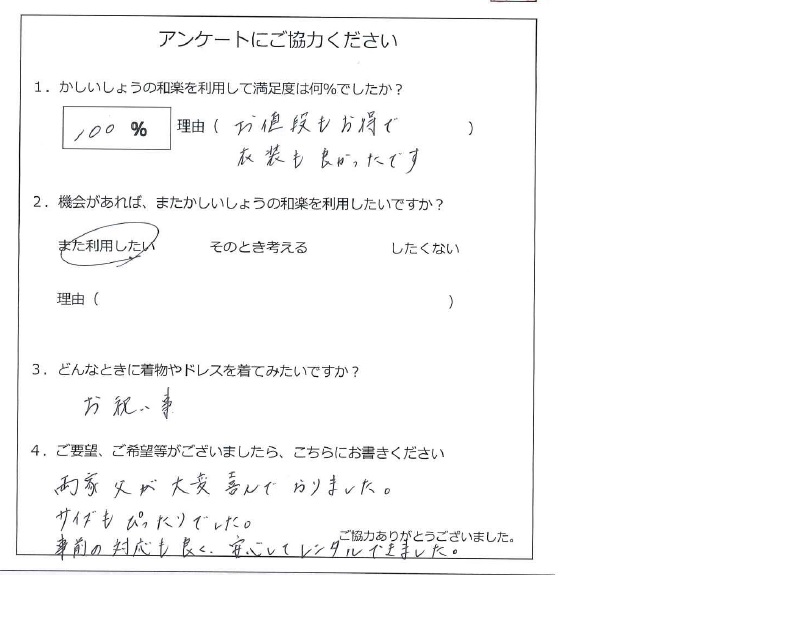 アンケートにご協力ください
1．かしいしょうの和楽を利用して満足度は何%でしたか？
100 % 理由（ お値段もお得で ）
衣装も良かったです
2．機会があれば、またかしいしょうの和楽を利用したいですか？
また利用したい そのとき考える したくない
理由（ ）
3．どんなときに着物やドレスを着てみたいですか？
お祝い事
4．ご要望、ご希望等がございましたら、こちらにお書きください
両家父が大変喜んでおりました。
サイズもぴったりでした。
ご協力ありがとうございました。
事前の対応も良く、安心してレンタルできました。